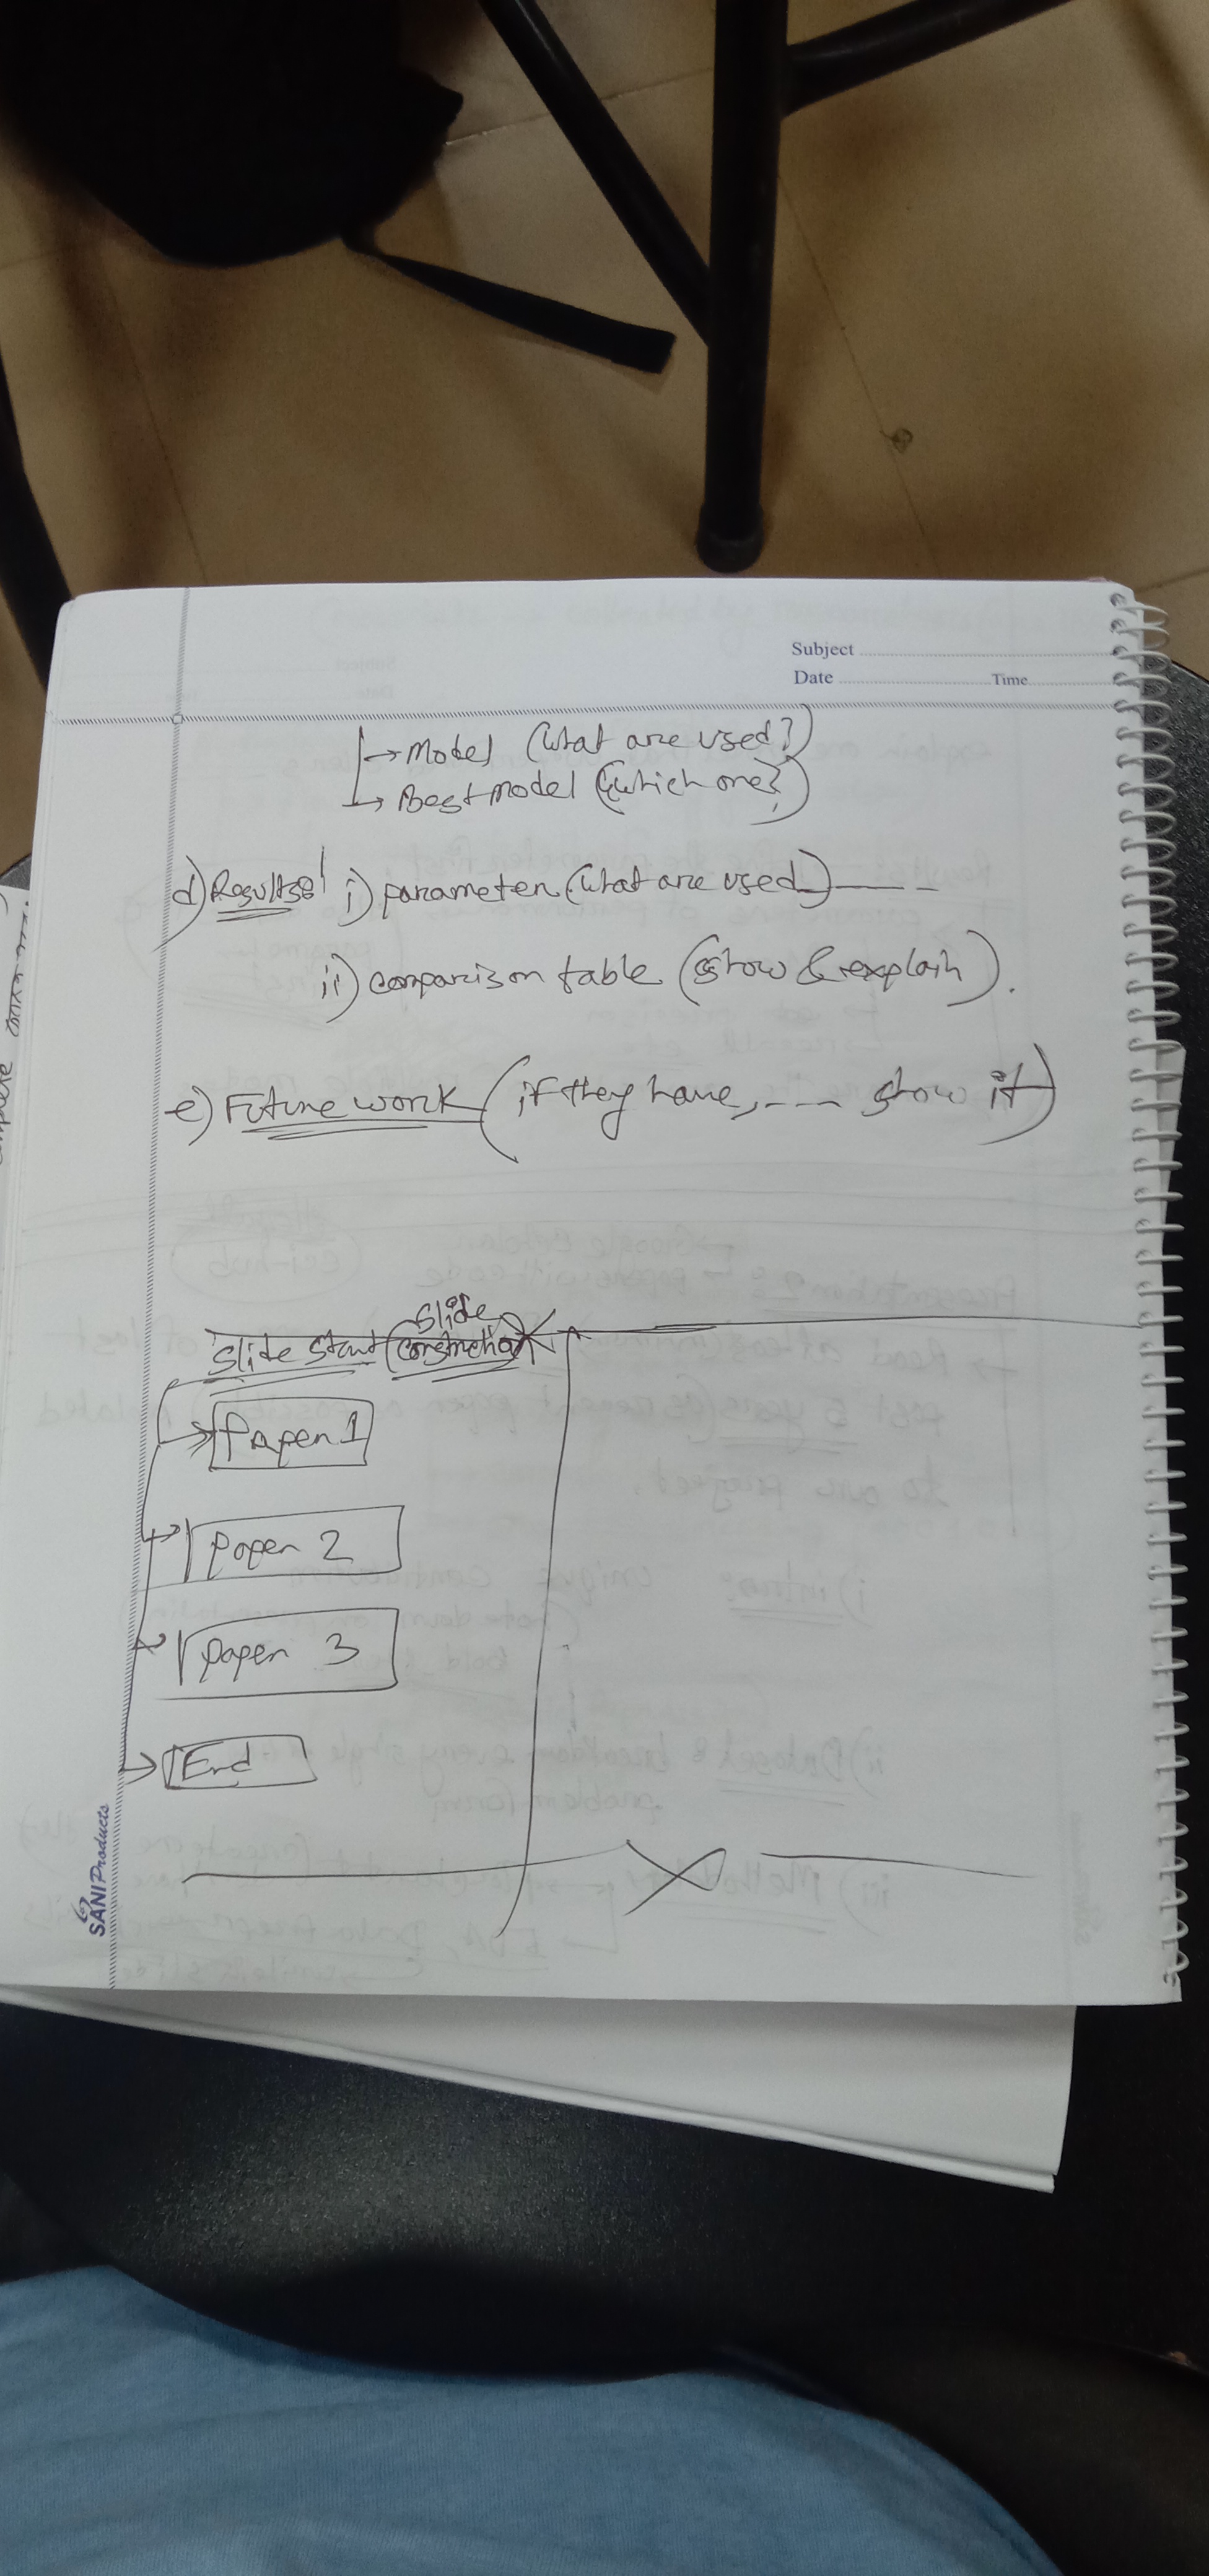 Subject
Date Time
→ Model (what are used?)
→ Best model (which one?)
d) Results: i) parameter (what are used)
ii) comparison table (show & explain).
e) Future work (if they have, --- show it)
slide
slide start (construction)
Paper 1
paper 2
paper 3
End
SANI Products